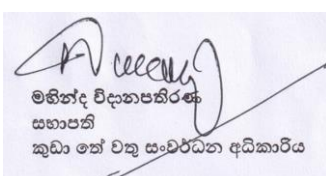 මහින්ද විදානපතිරණ
සභාපති
කුඩා තේ වතු සංවර්ධන අධිකාරිය